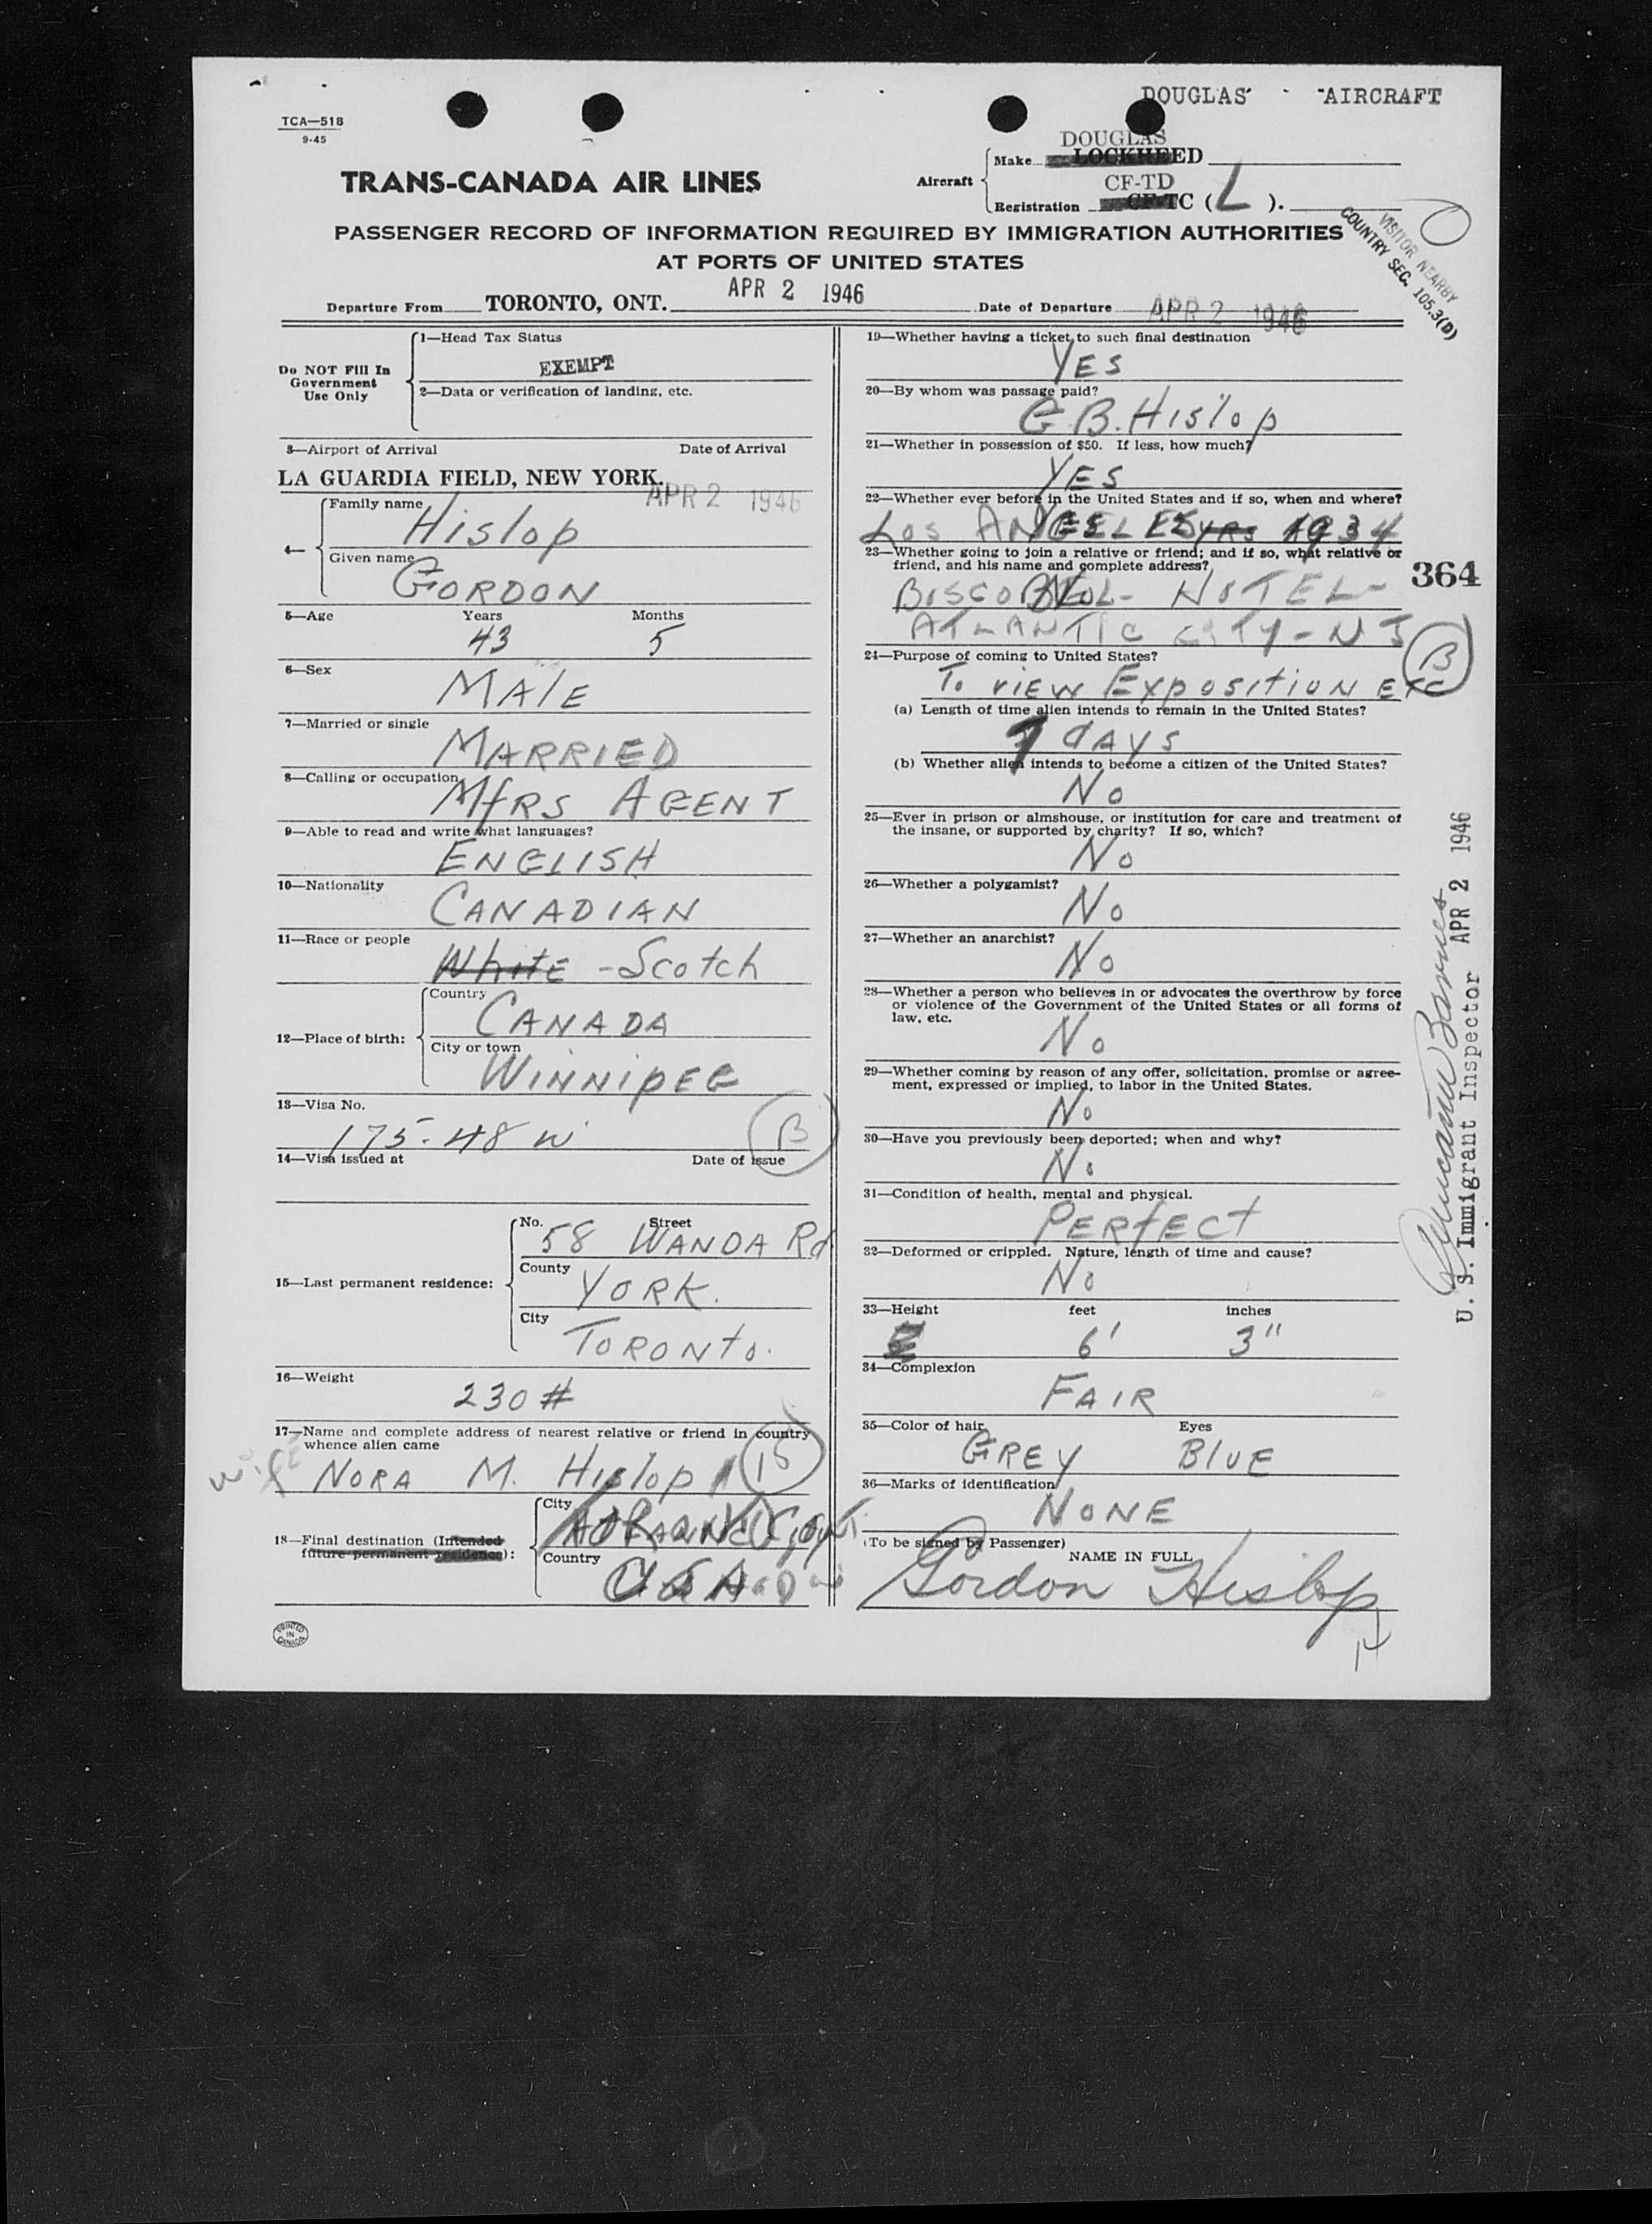 DOUGLAS AIRCRAFT
TCA—518
9-45
DOUGLAS
Make LOCKHEED
TRANS-CANADA AIR LINES
Aircraft
CF-TD
Registration CF-TC ( L ).
PASSENGER RECORD OF INFORMATION REQUIRED BY IMMIGRATION AUTHORITIES
AT PORTS OF UNITED STATES
VISITOR NEARBY
COUNTRY SEC. 105.3(D)
Departure From TORONTO, ONT. APR 2 1946 Date of Departure APR 2 1946
Do NOT Fill In
Government
Use Only
1—Head Tax Status
EXEMPT
2—Data or verification of landing, etc.
3—Airport of Arrival Date of Arrival
LA GUARDIA FIELD, NEW YORK. APR 2 1946
4—
Family name
Hislop
Given name
GORDON
5—Age Years Months
43 5
6—Sex
MALE
7—Married or single
MARRIED
8—Calling or occupation
MfRS AGENT
9—Able to read and write what languages?
ENGLISH
10—Nationality
CANADIAN
11—Race or people
White - Scotch
12—Place of birth:
Country
CANADA
City or town
WINNIPEG
13—Visa No.
175-48 W
B
14—Visa issued at Date of issue
15—Last permanent residence:
No. Street
58 WANDA Rd
County
YORK.
City
TORONTO.
16—Weight
230 #
17—Name and complete address of nearest relative or friend in country
whence alien came
wife NORA M. Hislop 15
18—Final destination (Intended
future permanent residence):
City
Country
USA
PRINTED
IN
CANADA
19—Whether having a ticket to such final destination
YES
20—By whom was passage paid?
G.B. Hislop
21—Whether in possession of $50. If less, how much?
YES
22—Whether ever before in the United States and if so, when and where?
LOS ANGELES yrs 1934
23—Whether going to join a relative or friend; and if so, what relative or
friend, and his name and complete address?
364
HOTEL-
ATLANTIC CITY - NJ
24—Purpose of coming to United States?
B
To VIEW EXPOSITION ETC
(a) Length of time alien intends to remain in the United States?
7 DAYS
(b) Whether alien intends to become a citizen of the United States?
No
25—Ever in prison or almshouse, or institution for care and treatment of
the insane, or supported by charity? If so, which?
No
26—Whether a polygamist?
No
27—Whether an anarchist?
No
28—Whether a person who believes in or advocates the overthrow by force
or violence of the Government of the United States or all forms of
law, etc.
No
29—Whether coming by reason of any offer, solicitation, promise or agree-
ment, expressed or implied, to labor in the United States.
No
30—Have you previously been deported; when and why?
No
31—Condition of health, mental and physical.
PERfECT
32—Deformed or crippled. Nature, length of time and cause?
No
33—Height feet inches
6' 3"
34—Complexion
FAIR
35—Color of hair Eyes
GREY BLUE
36—Marks of identification
NONE
(To be signed by Passenger)
NAME IN FULL
Gordon Hislop
Barnes
U. S. Immigrant Inspector APR 2 1946